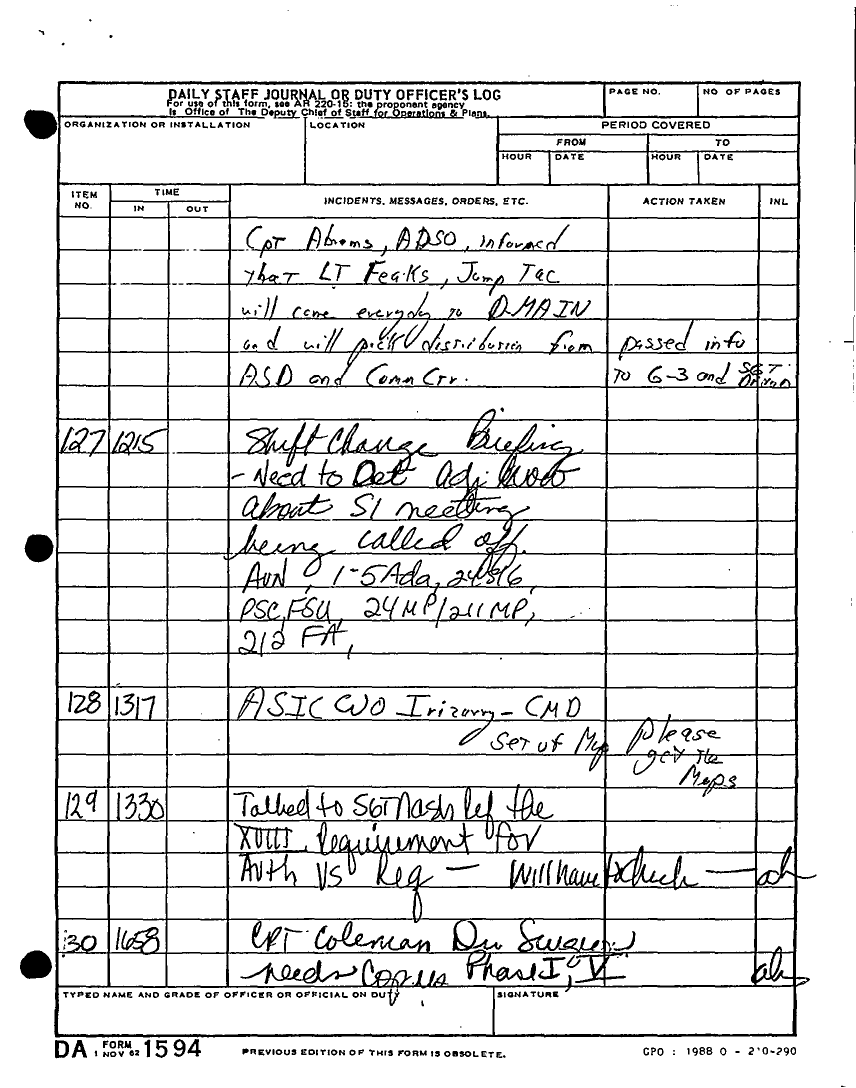 DAILY STAFF JOURNAL OR DUTY OFFICER'S LOG
For use of this form, see AR 220-15; the proponent agency
is Office of The Deputy Chief of Staff for Operations & Plans.
PAGE NO.
NO OF PAGES
ORGANIZATION OR INSTALLATION
LOCATION
PERIOD COVERED
FROM
TO
HOUR
DATE
HOUR
DATE
ITEM NO.
TIME
IN
OUT
INCIDENTS, MESSAGES, ORDERS, ETC.
ACTION TAKEN
INL
Cpt Abrams, ADSO, informed
that LT Feaks, Jump Tac
will come everyday to D-MAIN
and will pick distribution from passed info
ASD and Comm Ctr. to G-3 and SGT
127 1215 Shift Change Briefing
- Need to Det adj
about S1 meeting
being called off.
AVN, 1-5 Ada,
PSC, FSU, 24 MP/211 MP,
212 FA,
128 1317 ASIC CWO Irizarry - CMD
set of Map please
get the
Maps
129 1330 Talked to SGT Nash ref the
XVIII Requirement for
Auth VS Req — Will have to check — ah
130 1658 CPT Coleman Div
needs Copies Phase I, V ah
TYPED NAME AND GRADE OF OFFICER OR OFFICIAL ON DUTY
SIGNATURE
DA FORM 1 NOV 62 1594
PREVIOUS EDITION OF THIS FORM IS OBSOLETE.
GPO : 1988 O - 210-290